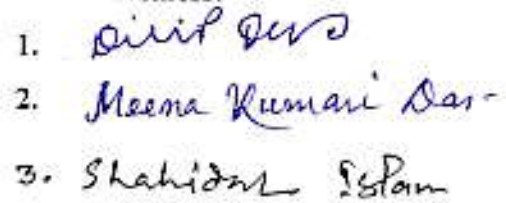 1. Dilip Deb
2. Meena Kumari Das
3. Shahidul Islam